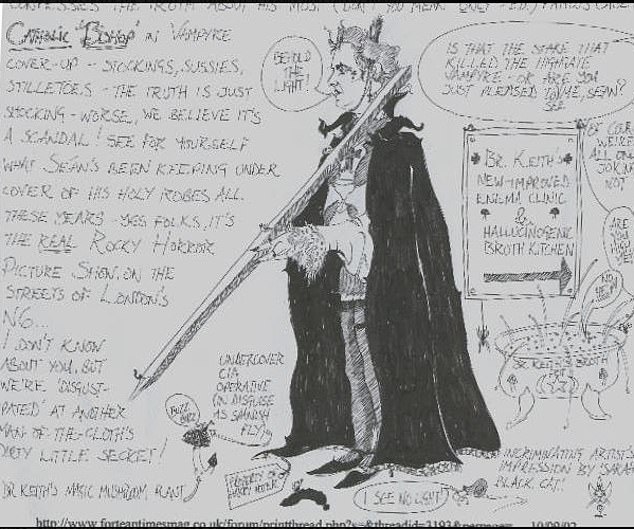 CONFESSES THE TRUTH ABOUT HIS MOST (DON'T YOU MEAN 'ONLY' - ED.) FAMOUS CASE
CATHOLIC 'BISHOP' IN VAMPYRE
COVER-UP - STOCKINGS, SUSSIES,
STILLETOES - THE TRUTH IS JUST
SHOCKING - WORSE, WE BELIEVE IT'S
A SCANDAL! SEE FOR YOURSELF
WHAT SEÁN'S BEEN KEEPING UNDER
COVER OF HIS HOLY ROBES ALL
THESE YEARS - YES FOLKS, IT'S
THE REAL ROCKY HORROR
PICTURE SHOW, ON THE
STREETS OF LONDON'S
N6...
I DON'T KNOW
ABOUT YOU, BUT
WE'RE 'DISGUST-
PATED' AT ANOTHER
MAN-OF-THE-CLOTH'S
DIRTY LITTLE SECRET!
DR. KEITH'S MAGIC MUSHROOM PLANT
BEHOLD
THE
LIGHT!
IS THAT THE STAKE THAT
KILLED THE HIGHGATE
VAMPYRE - OR ARE YOU
JUST PLEASED TO
SEE
ME, SEÁN?
BR. KEITH'S
NEW-IMPROVED
ENEMA CLINIC
&
HALLUCINOGENIC
BROTH KITCHEN
WE'RE
ALL ONLY
JOKING
NOT
ARE
YOU
BR. KEITH'S BROTH
UNDERCOVER
CIA
OPERATIVE
(IN DISGUISE
AS SPANISH
FLY)
BUZZ
PROPERTY OF
I SEE NO LIGHT!
INCRIMINATING ARTIST'S
IMPRESSION BY SARAH
BLACK CAT!
http://www.forteantimesmag.co.uk/forum/printthread.php?s=&threadid=3193&perpage= 10/09/02